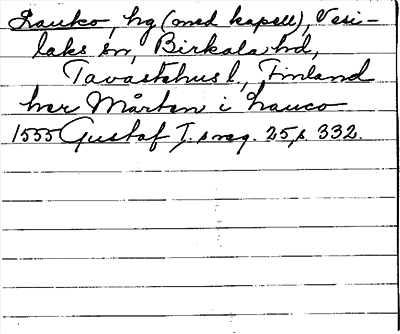 Lauko, hg (med kapell), Vesi-
laks sn, Birkala hd,
Tavastehus l., Finland
her Mårten i Lauco
1555 Gustaf I:s reg. 25, s. 332.